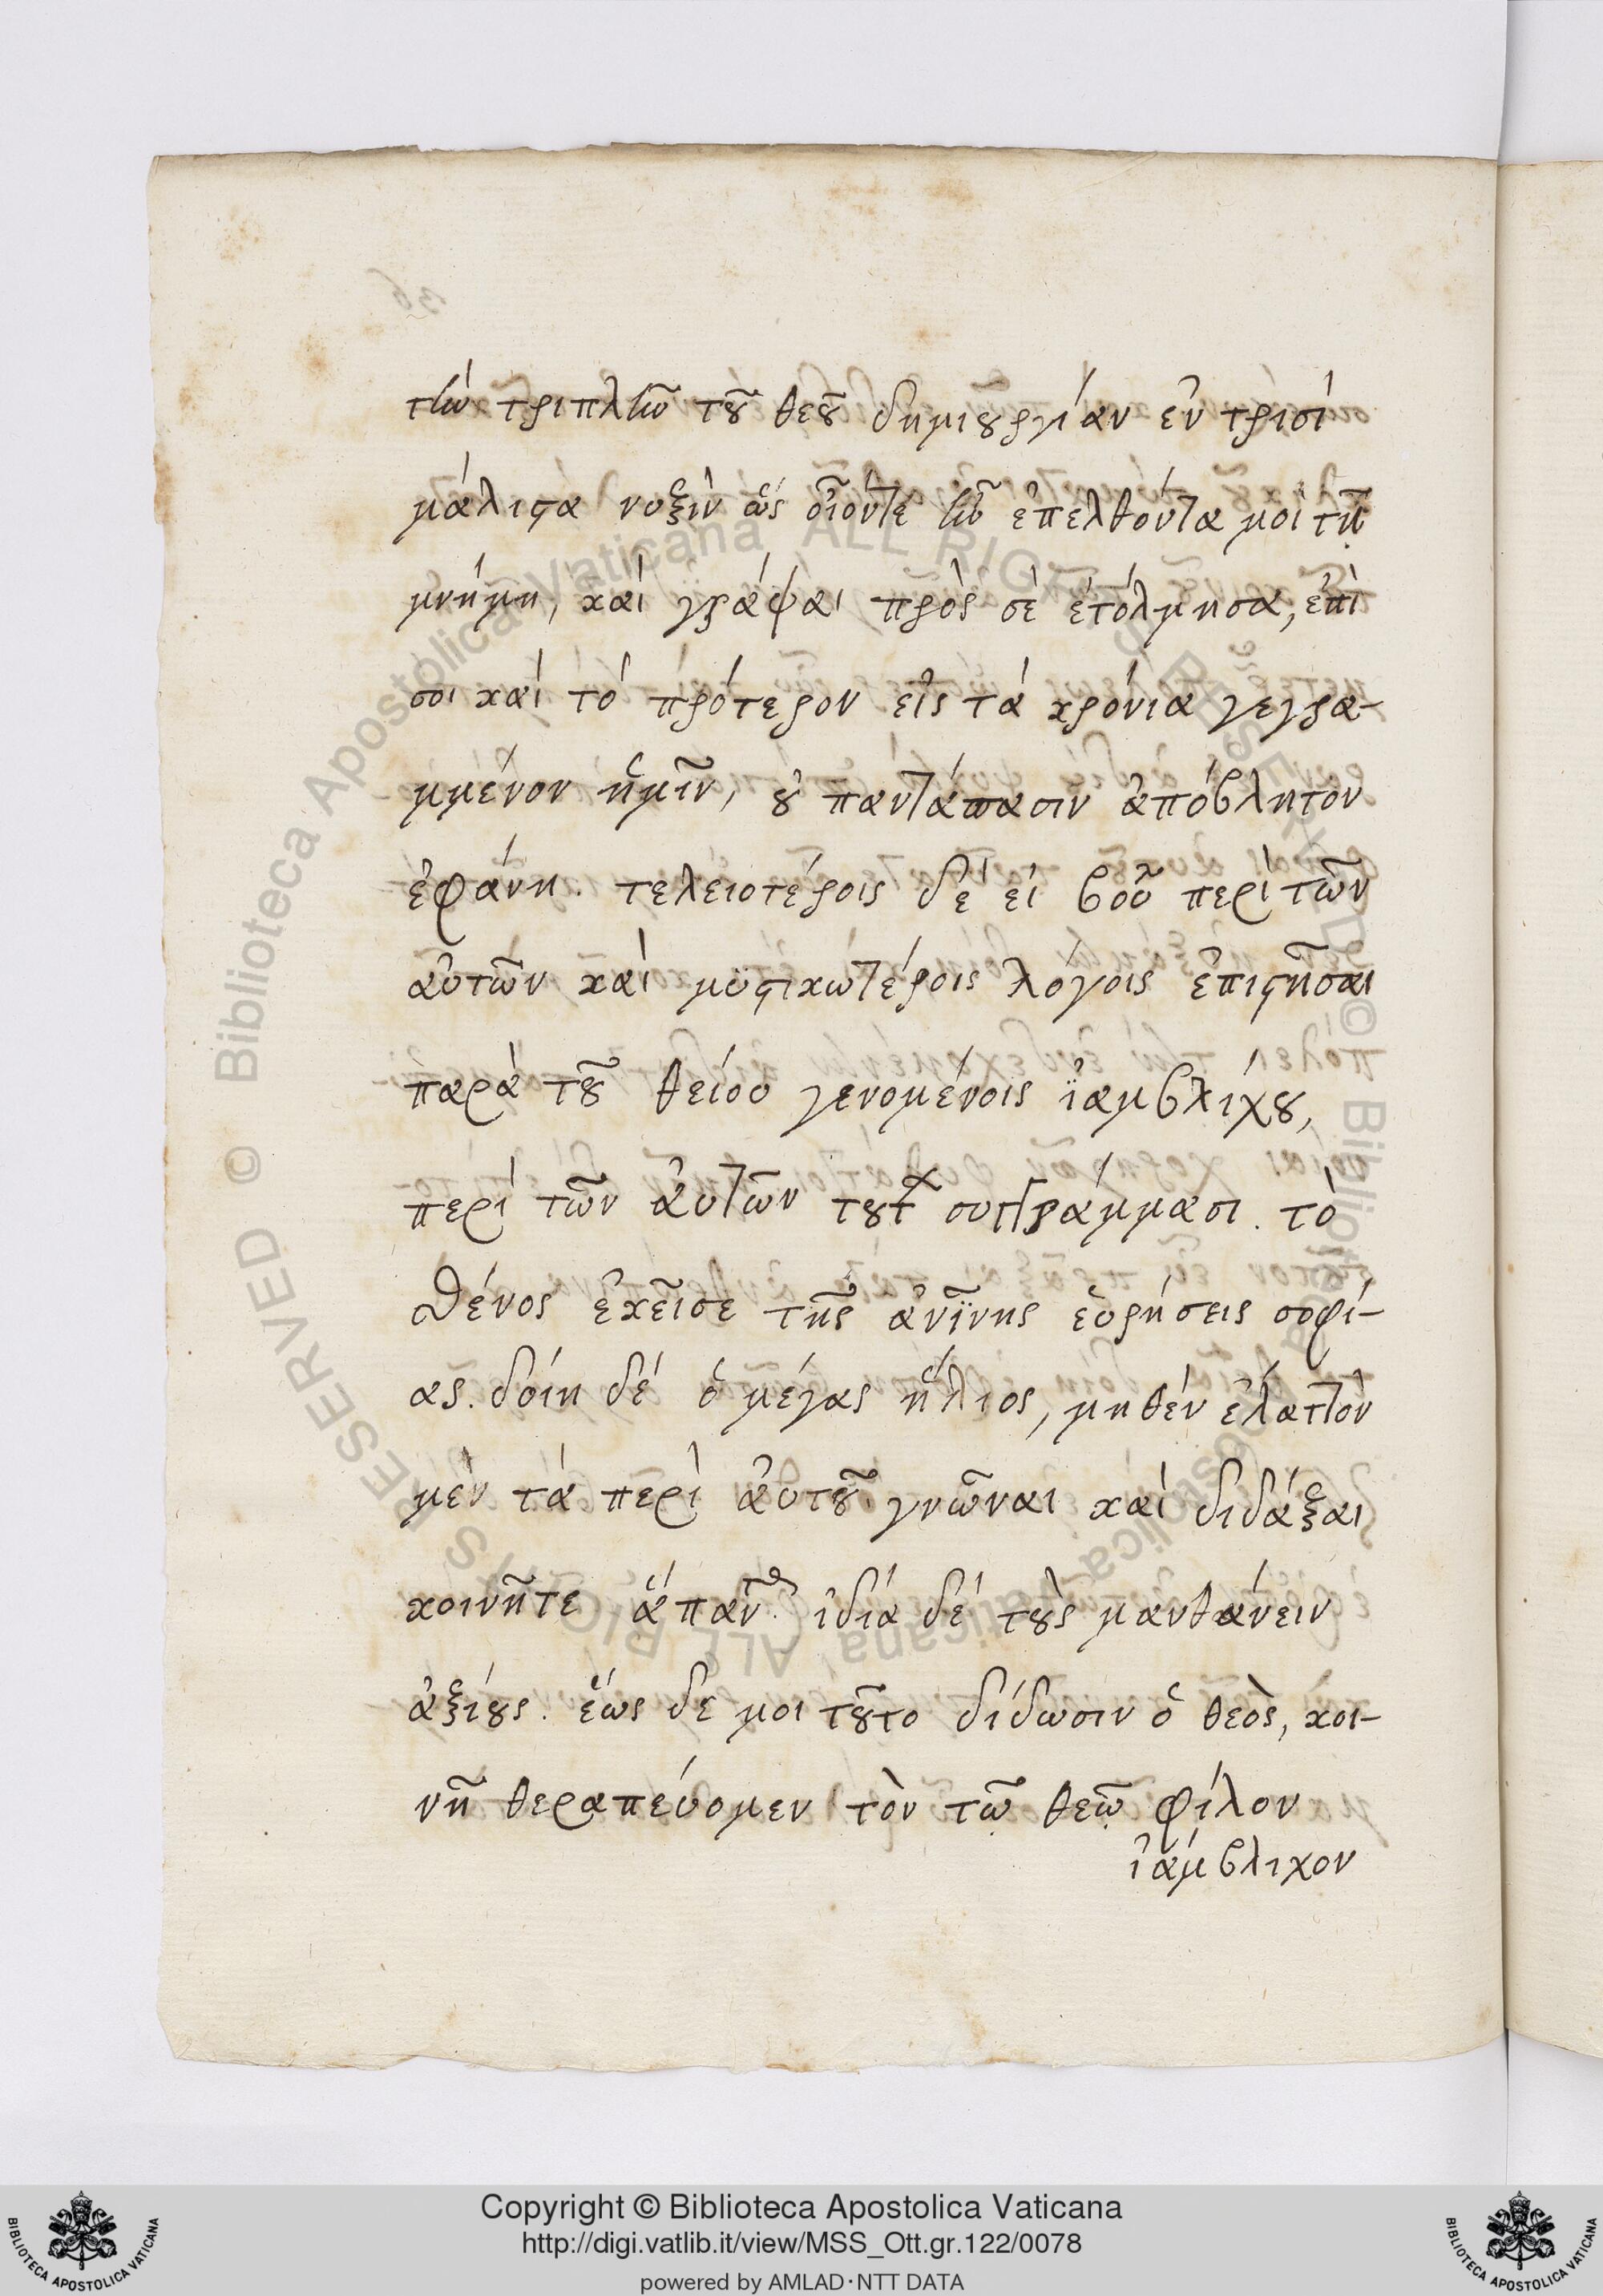 τὴν τριπλῆν τοῦ θεοῦ δημιουργίαν ἐν τρισί
μάλιστα νυξὶν ὡς οἷόντε ἦν ἐπελθόντα μοι τῇ
μνήμῃ, καὶ γράψαι πρὸς σὲ ἐτόλμησα, ἐπὶ
σοι καὶ τό πρότερον εἰς τά χρόνια γεγρα-
μμένον ἡμῖν, οὐ παντάπασιν ἀπόβλητον
ἐφάνη. τελειοτέροις δέ εἰ βοῦ περὶ τῶν
αὐτῶν καὶ μυστικωτέροις λόγοις ἐπιστῆσαι
παρὰ τοῦ θείου γενομένοις ἰαμβλίχου,
περὶ τῶν αὐτῶν τουτ συγγράμμασι. τὸ
Θένος ἐκεῖσε τῆς ἀνΐνης εὑρήσεις σοφί-
ας. δοίη δέ ὁ μέγας ἥλιος, μηθέν ἐλαττόν
μὲν τά περὶ αὐτοῦ γνῶναι καὶ διδάξαι
κοινῆτε ἅπαν ἰδιά δέ τοὺς μανθάνειν
ἀξίους. ἕως δε μοι τοῦτο δίδωσιν ὁ θεὸς, κοι-
νῆ θεραπεύομεν τὸν τῷ θεῷ φίλον
ἰάμβλιχον
Copyright © Biblioteca Apostolica Vaticana
http://digi.vatlib.it/view/MSS_Ott.gr.122/0078
powered by AMLAD·NTT DATA
BIBLIOTECA APOSTOLICA VATICANA
BIBLIOTECA APOSTOLICA VATICANA